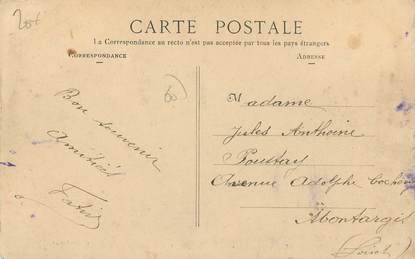 200
CARTE POSTALE
La Correspondance au recto n'est pas acceptée par tous les pays étrangers
CORRESPONDANCE
ADRESSE
60
Bon souvenir
Amitiés
Madame
Jules Anthoine
Avenue Adolphe Cochery
Montargis
(Loiret)